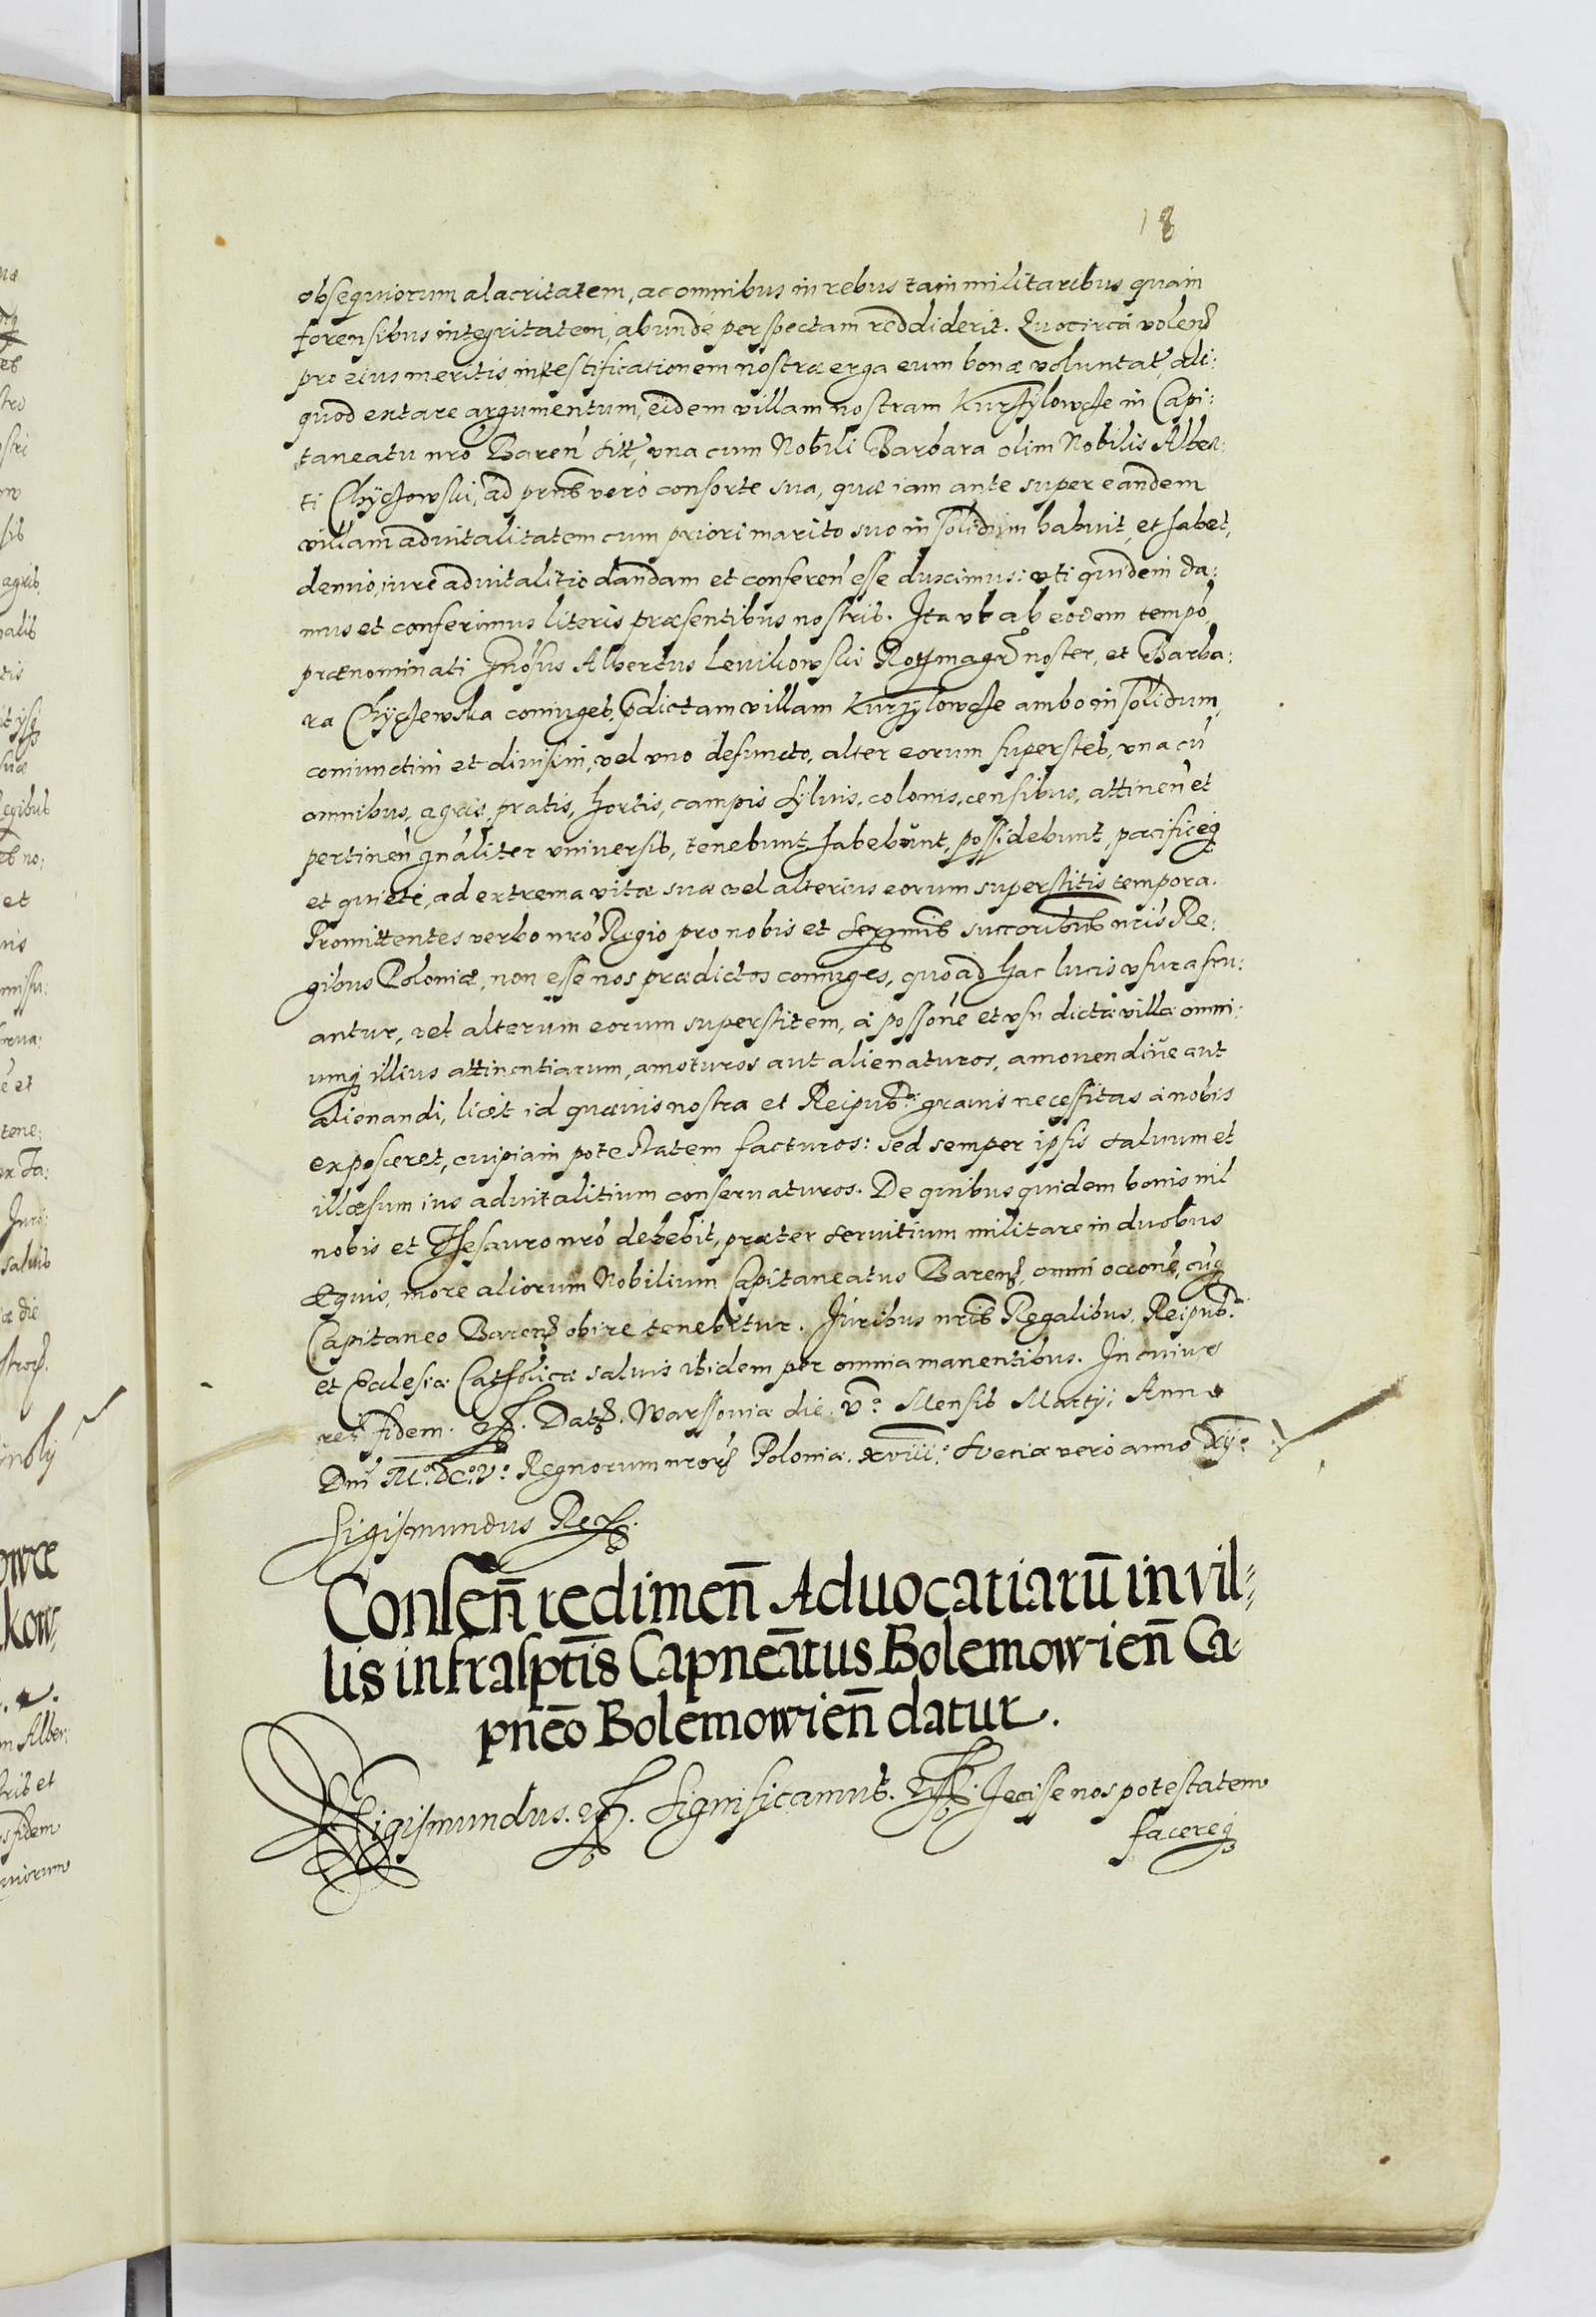 18
obsequiorum alacritatem, ac omnibus in rebus tam militaribus quam
forensibus integritatem, abunde perspectam reddiderit. Quocirca volen
pro eius meritis, in testificationem nostrae erga eum bonae voluntat, ali:
quod extare argumentum, eidem villam nostram Kurzylowcze in Capi:
taneatu nro Baren sitt, una cum Nobili Barbara olim Nobilis Alber:
ti Chyczowski, ad prns vero consorte sua, quae iam ante super eandem
villam advitalitatem cum priori marito suo in solidum habuit, et habet,
denuo, iure advitalitio dandam et conferen esse duximus: uti quidem da:
mus et conferimus literis praesentibus nostris. Ita ut ab eodem tempo
praenominati Gnosus Albertus Levikowski Rottmagr noster, et Barba:
ra Chyczewska coniuges, pdictam villam Kurzylowcze ambo in solidum,
coniunctim et divisim, vel uno defuncto, alter eorum superstes, una cu
omnibus, agris, pratis, hortis, campis sylvis, colonis, censibus, attinen et
pertinen gnaliter universis, tenebunt habebunt, possidebunt, pacificeq
et quiete, ad extrema vitae suae vel alterius eorum superstitis tempora.
Promittentes verbo nro Regio pro nobis et Serenmis succoribus nris Re:
gibus Poloniae, non esse nos praedictos coniuges, quoad hac lucis usura fru:
antur, vel alterum eorum superstitem, a possone et usu dictae villae omni:
umq illius attinentiarum, amoturos aut alienaturos, amovendive aut
alienandi, licet id quaevis nostra et Reipub. gravis necessitas a nobis
exposceret, cuipiam potestatem facturos: sed semper ipsis salvum et
illaesum ius advitalitium conservaturos. De quibus quidem bonis nil
nobis et Thesauro nro debebit, praeter servitium militare in duobus
Equis, more aliorum Nobilium Capitaneatus Barens, omni occone, cuq
Capitaneo Barens obire tenebitur. Iuribus nris Regalibus, Reipub.
et Ecclesiae Catholicae salvis ibidem per omnia manentibus. In cuius
rei fidem. etc. Dat. Warssoviae die. V. Mensis Martij. Anno
Dni M. DC. V. Regnorum nrorum Poloniae. xviii. Sveciae vero anno xij.
Sigismundus Rex.
Consen redimen Aduocatiaru in vil-
lis infrasptis Capneatus Bolemowien Ca-
pneo Bolemowien datur.
Sigismundus. etc. Significamus. etc. Jecisse nos potestatem
facereq